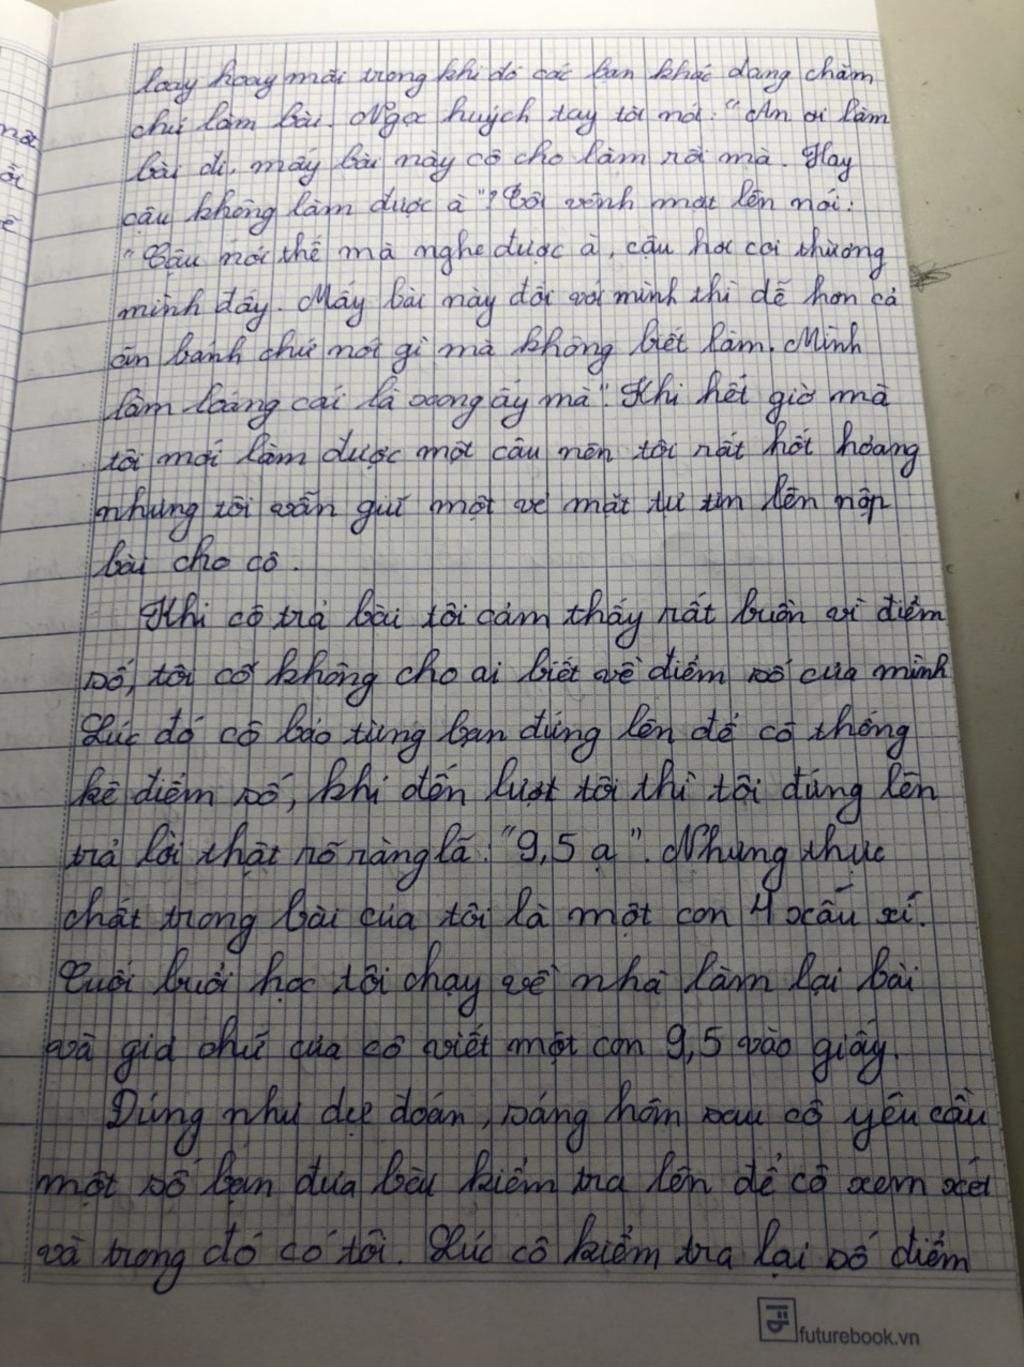 loay hoay mãi trong khi đó các bạn khác đang chăm
chú làm bài. Ngọc huých tay tôi nói: "An ơi làm
bài đi, mấy bài này cô cho làm rồi mà. Hay
cậu không làm được à"? Tôi vênh mặt lên nói:
"Cậu nói thế mà nghe được à, cậu hơi coi thường
mình đấy. Mấy bài này đối với mình thì dễ hơn cả
ăn bánh chứ nói gì mà không biết làm. Mình
làm loáng cái là xong ấy mà". Khi hết giờ mà
tôi mới làm được một câu nên tôi rất hốt hoảng
nhưng tôi vẫn giữ một vẻ mặt tự tin lên nộp
bài cho cô.
Khi cô trả bài tôi cảm thấy rất buồn vì điểm
số, tôi cố không cho ai biết về điểm số của mình
Lúc đó cô bảo từng bạn đứng lên để cô thống
kê điểm số, khi đến lượt tôi thì tôi đứng lên
trả lời thật rõ ràng là: "9,5 ạ". Nhưng thực
chất trong bài của tôi là một con 4 xấu xí.
Cuối buổi học tôi chạy về nhà làm lại bài
và giả chữ của cô viết một con 9,5 vào giấy.
Đúng như dự đoán, sáng hôm sau cô yêu cầu
một số bạn đưa bài kiểm tra lên để cô xem xét
và trong đó có tôi. Lúc cô kiểm tra lại số điểm
futurebook.vn